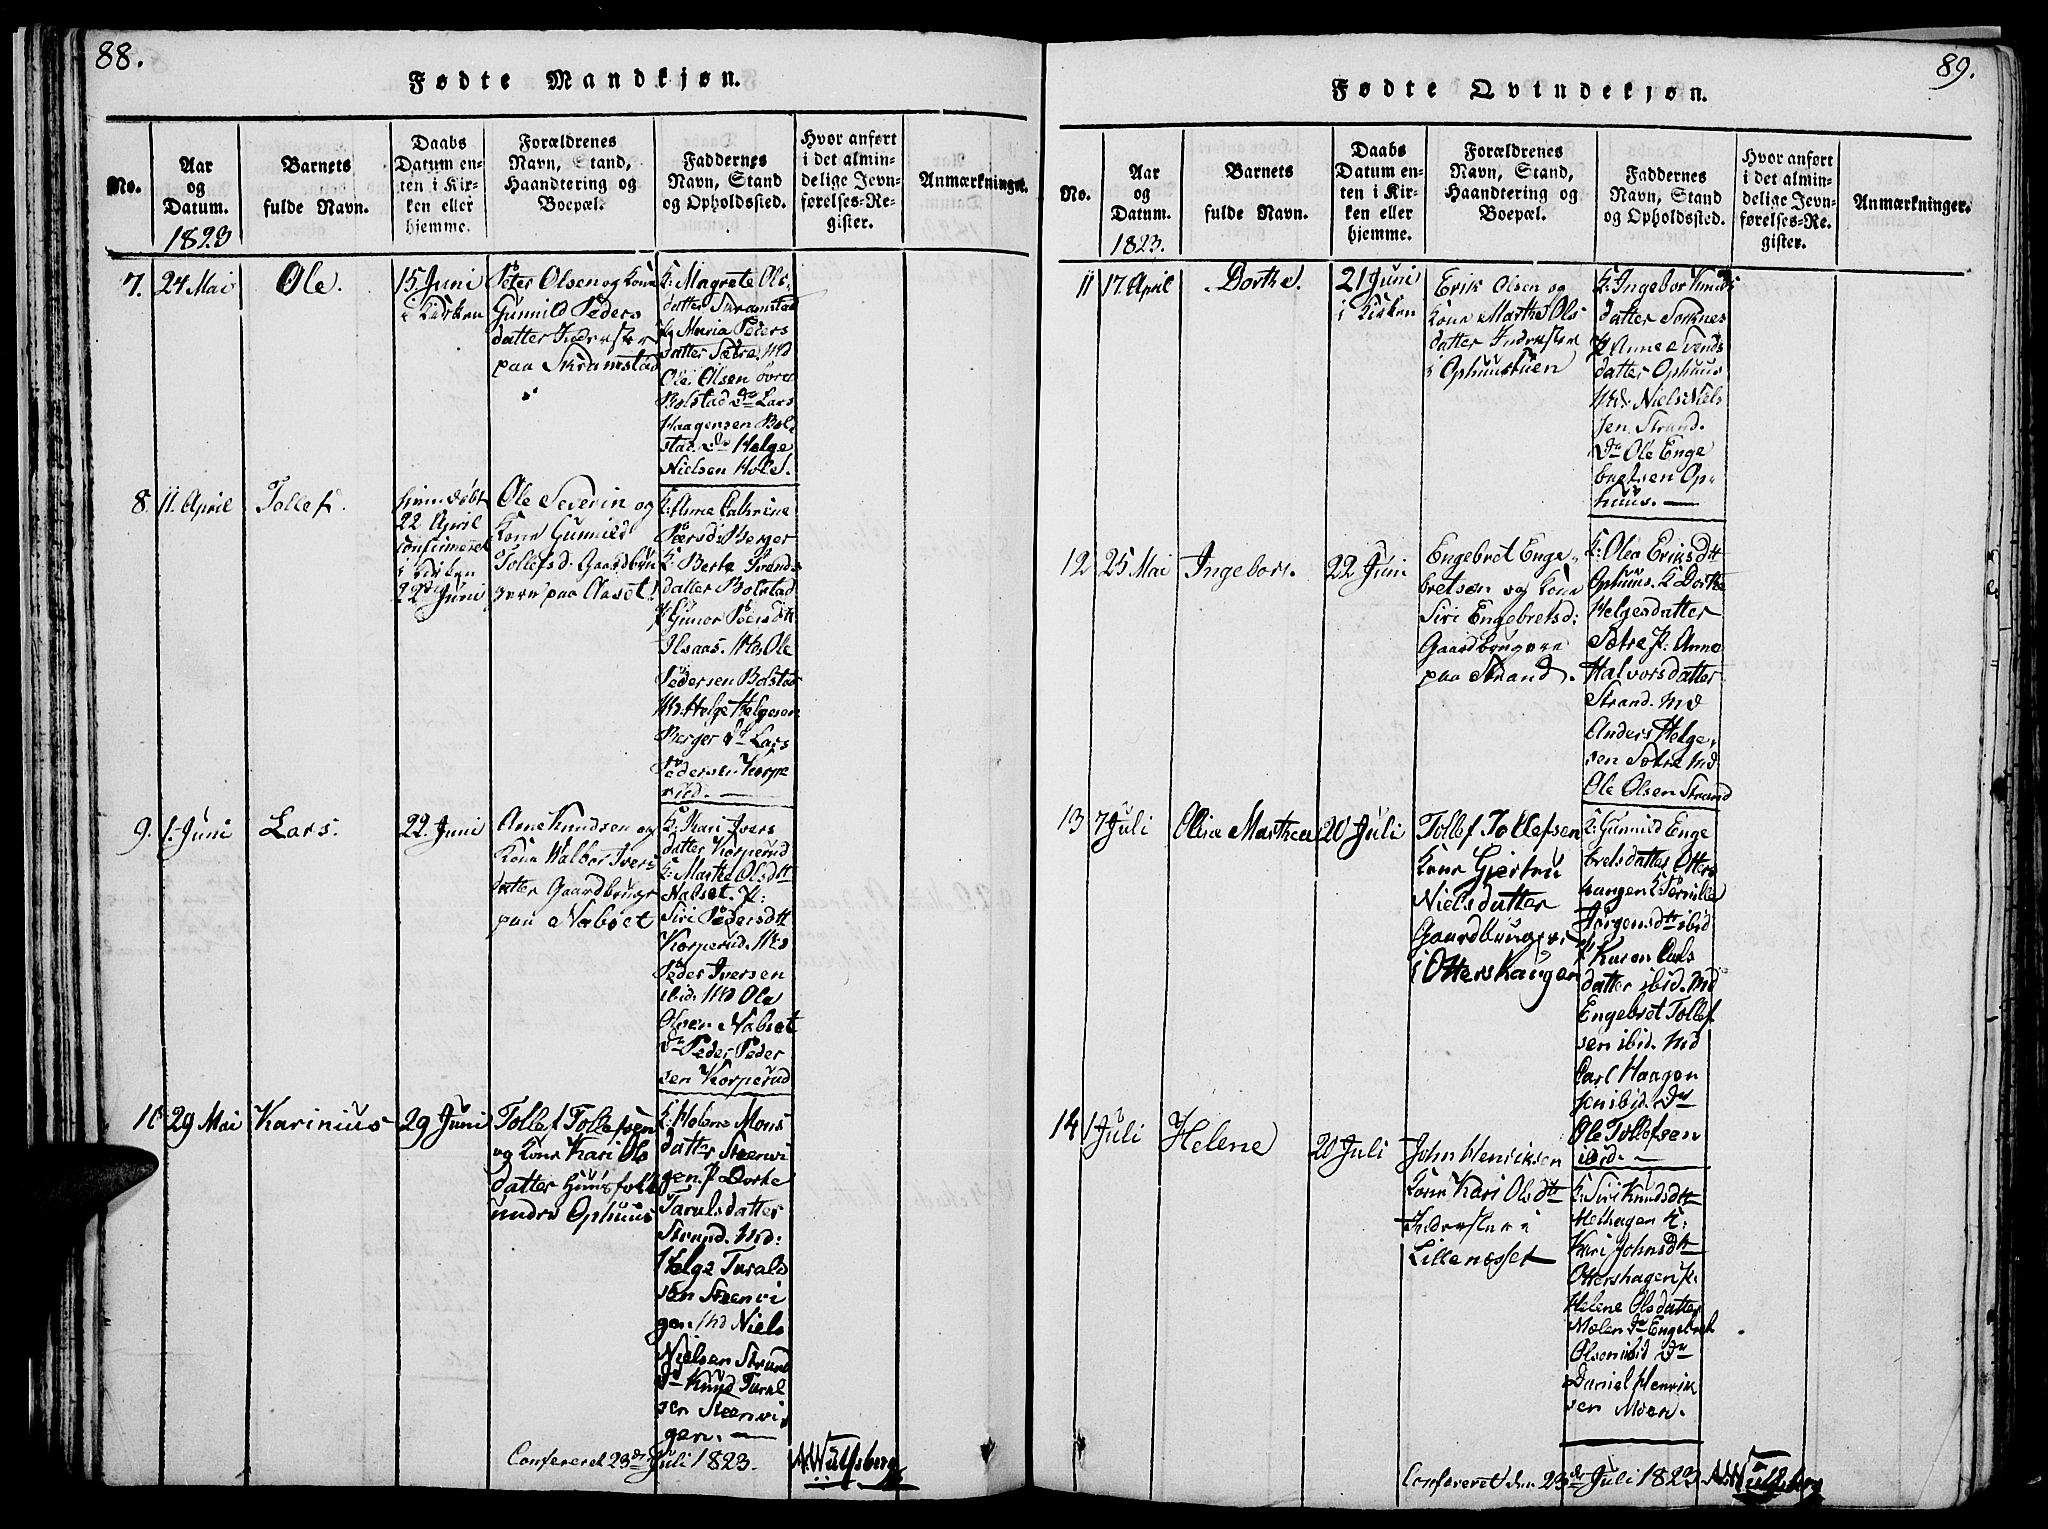 88.
Fødte Mandkjøn.
No.
Aar
og
Datum.
1823
Barnets
fulde Navn.
Daabs
Datum en-
ten i Kir-
ken eller
hjemme.
Forældrenes
Navn, Stand,
Haandtering og
Boepæl.
Faddernes
Navn, Stand
og Opholdssted.
Hvor anført
i det almin-
delige Jevn-
førelses-Re-
gister.
Anmærkninger.
7.
24 Mai
Ole.
15 Juni
i Kirken
Peter Olsen og Kone
Gunnild Peders
datter Inderster
paa Skramstad
K: Magrete Ols
datter Skramstad
P. Maria Peders
datter Sætre. Md
Ole Olsen övre
Bolstad do Lars
Haagensen Bol
stad. do Helge
Nielsen Hole.
8
11. April
Tollef.
hiemdöbt
22 April
Confirmeret
i Kirken
22 Juni
Ole Severin og
Kone Gunnild
Tollefsd. Gaardbru
gere paa Aaset.
K: Anne Cathrine
Pedersd: Berger
K: Berte Svends
datter Bolstad
P Gunor Pedersdtt
Ilsaas. Md. Ole
Pedersen Bolstad
Md: Helge Helgesen
Berger do Lars
Pedersen Korpe
rud. —
9.
1. Juni
Lars.
22. Juni
Arne Knudsen og
Kone Walbor Ivers
datter Gaardbruger
paa Nabset
K: Kari Ivers
datter Korperud
K: Marthe Olsdtt
Nabset. P:
Siri Pedersdtt
Korperud. Md
Peder Iversen
ibid. Md Ole
Olsen Nabset
do Peder Peder
sen Korperud
10
29 Mai
Karinius
29 Juni
Tollef Tollefsen
og Kone Kari Ols
datter Huusfolk
nedre Ophuus
K: Helene Mons
datter Steenvi
gen. P Dorthe
Taralsdatter
Strand. Md:
Helge Taralds
sen Steenvi
gen. Md Niels
Nielsen Strand
do Knud Taral
sen Steenvi
gen. —
Confereret 23de Juli 1823.
A. Wulfsberg
89.
Fødte Qvindekjøn.
No.
Aar
og
Datum.
1823.
Barnets
fulde Navn.
Daabs
Datum en-
ten i Kir-
ken eller
hjemme.
Forældrenes
Navn, Stand,
Haandtering og
Boepæl.
Faddernes
Navn, Stand
og Opholdssted.
Hvor anført
i det almin-
delige Jevn-
førelses-Re-
gister.
Anmærkninger.
11
17. April
Dorthe.
21 Juni
i Kirken
Erik Olsen og
Kone Marthe Ols
datter Inderster
i Ophuustuen
K: Ingebor Knuds
datter Sorknes
P Anne Svends
datter Ophuus
Md. Niels Niels
sen Strand.
do Ole Enge
bretsen Op-
huus. —
12
25 Mai
Ingebor.
22 Juni
Engebret Enge-
bretsen og Kone
Siri Engebretsd:
Gaardbrugere
paa Strand.
K: Olea Eriksdtt
Ophuus. K Dorthe
Helgesdatter
Sætre P: Anne
Halvorsdatter
Strand. Md
Anders Helge-
sen Sætre Md
Ole Olsen Strand
13
7 Juli
Oline Marthea
20 Juli
Tollef Tollefsen
Kone Gjertru
Nielsdatter
Gaardbrugere
i Otterskangen
K: Gunnild Enge
bretsdatter Otters
kangen K: Pernille
Jörgensdtt ibid
P Karen Carls
datter ibid. Md
Engebret Tollef
sen ibid. Md
Carl Haagen
sen ibid. do
Ole Tollefsen
ibid. —
14
1 Juli
Helene
20 Juli
John Henriksen
Kone Kari Olsdtt
Inderster i
Lillenæsset
K: Siri Knudsdtt
Melhagen K:
Kari Johnsdtt
Ottershagen P.
Helene Olsdatter
Moen do Engebret
Olsen ibid do
Daniel Henrik
sen Moen.
Confereret den 23de Juli 1823
A. Wulfsberg